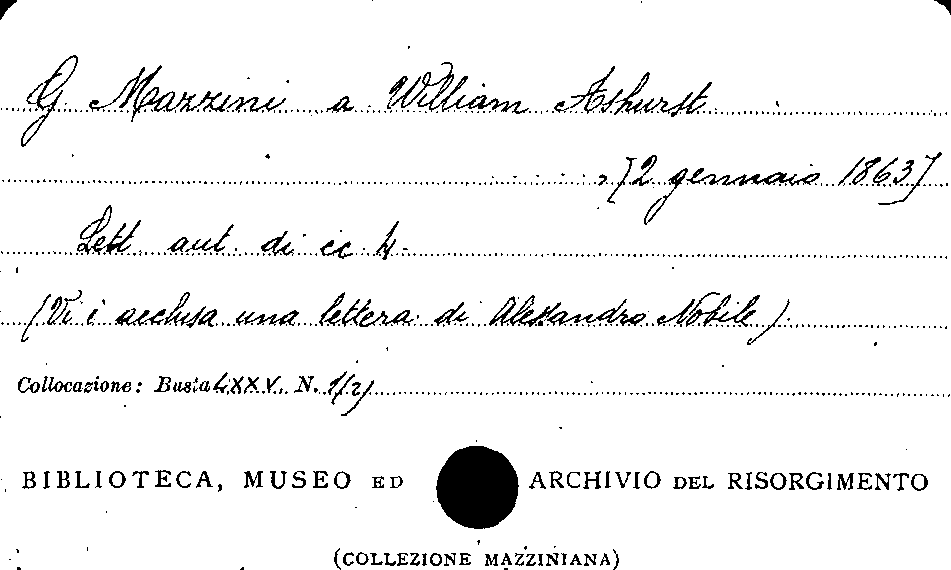 G. Mazzini a William Ashurst
, [2 gennaio 1863]
Lett. aut. di cc 4.
(Vi è acclusa una lettera di Alessandro Nobile).
Collocazione: Busta LXXV. N. 1(2)
BIBLIOTECA, MUSEO ED ARCHIVIO DEL RISORGIMENTO
(COLLEZIONE MAZZINIANA)